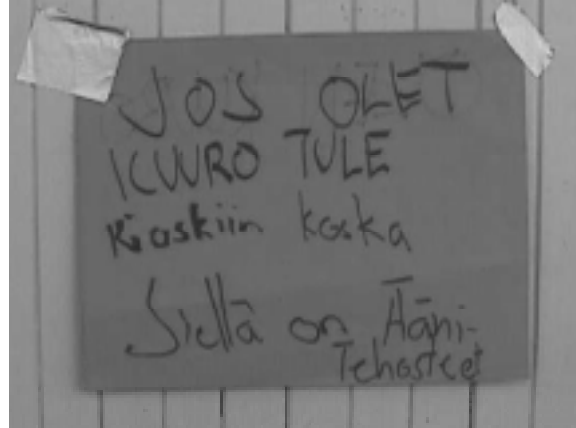 JOS OLET
KUURO TULE
Kioskiin koska
Siellä on Ääni-
Tehosteet